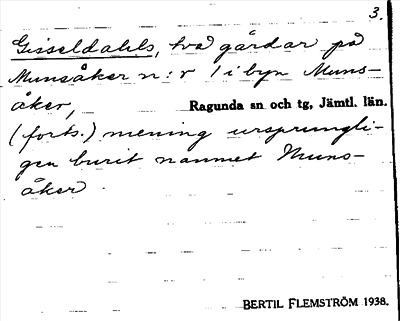 3.
Gisseldahls, två gårdar på
Munsåker n:r 1 i byn Muns-
åker,
Ragunda sn och tg, Jämtl. län.
(forts.) mening ursprungli-
gen burit namnet Muns-
åker.
BERTIL FLEMSTRÖM 1938.